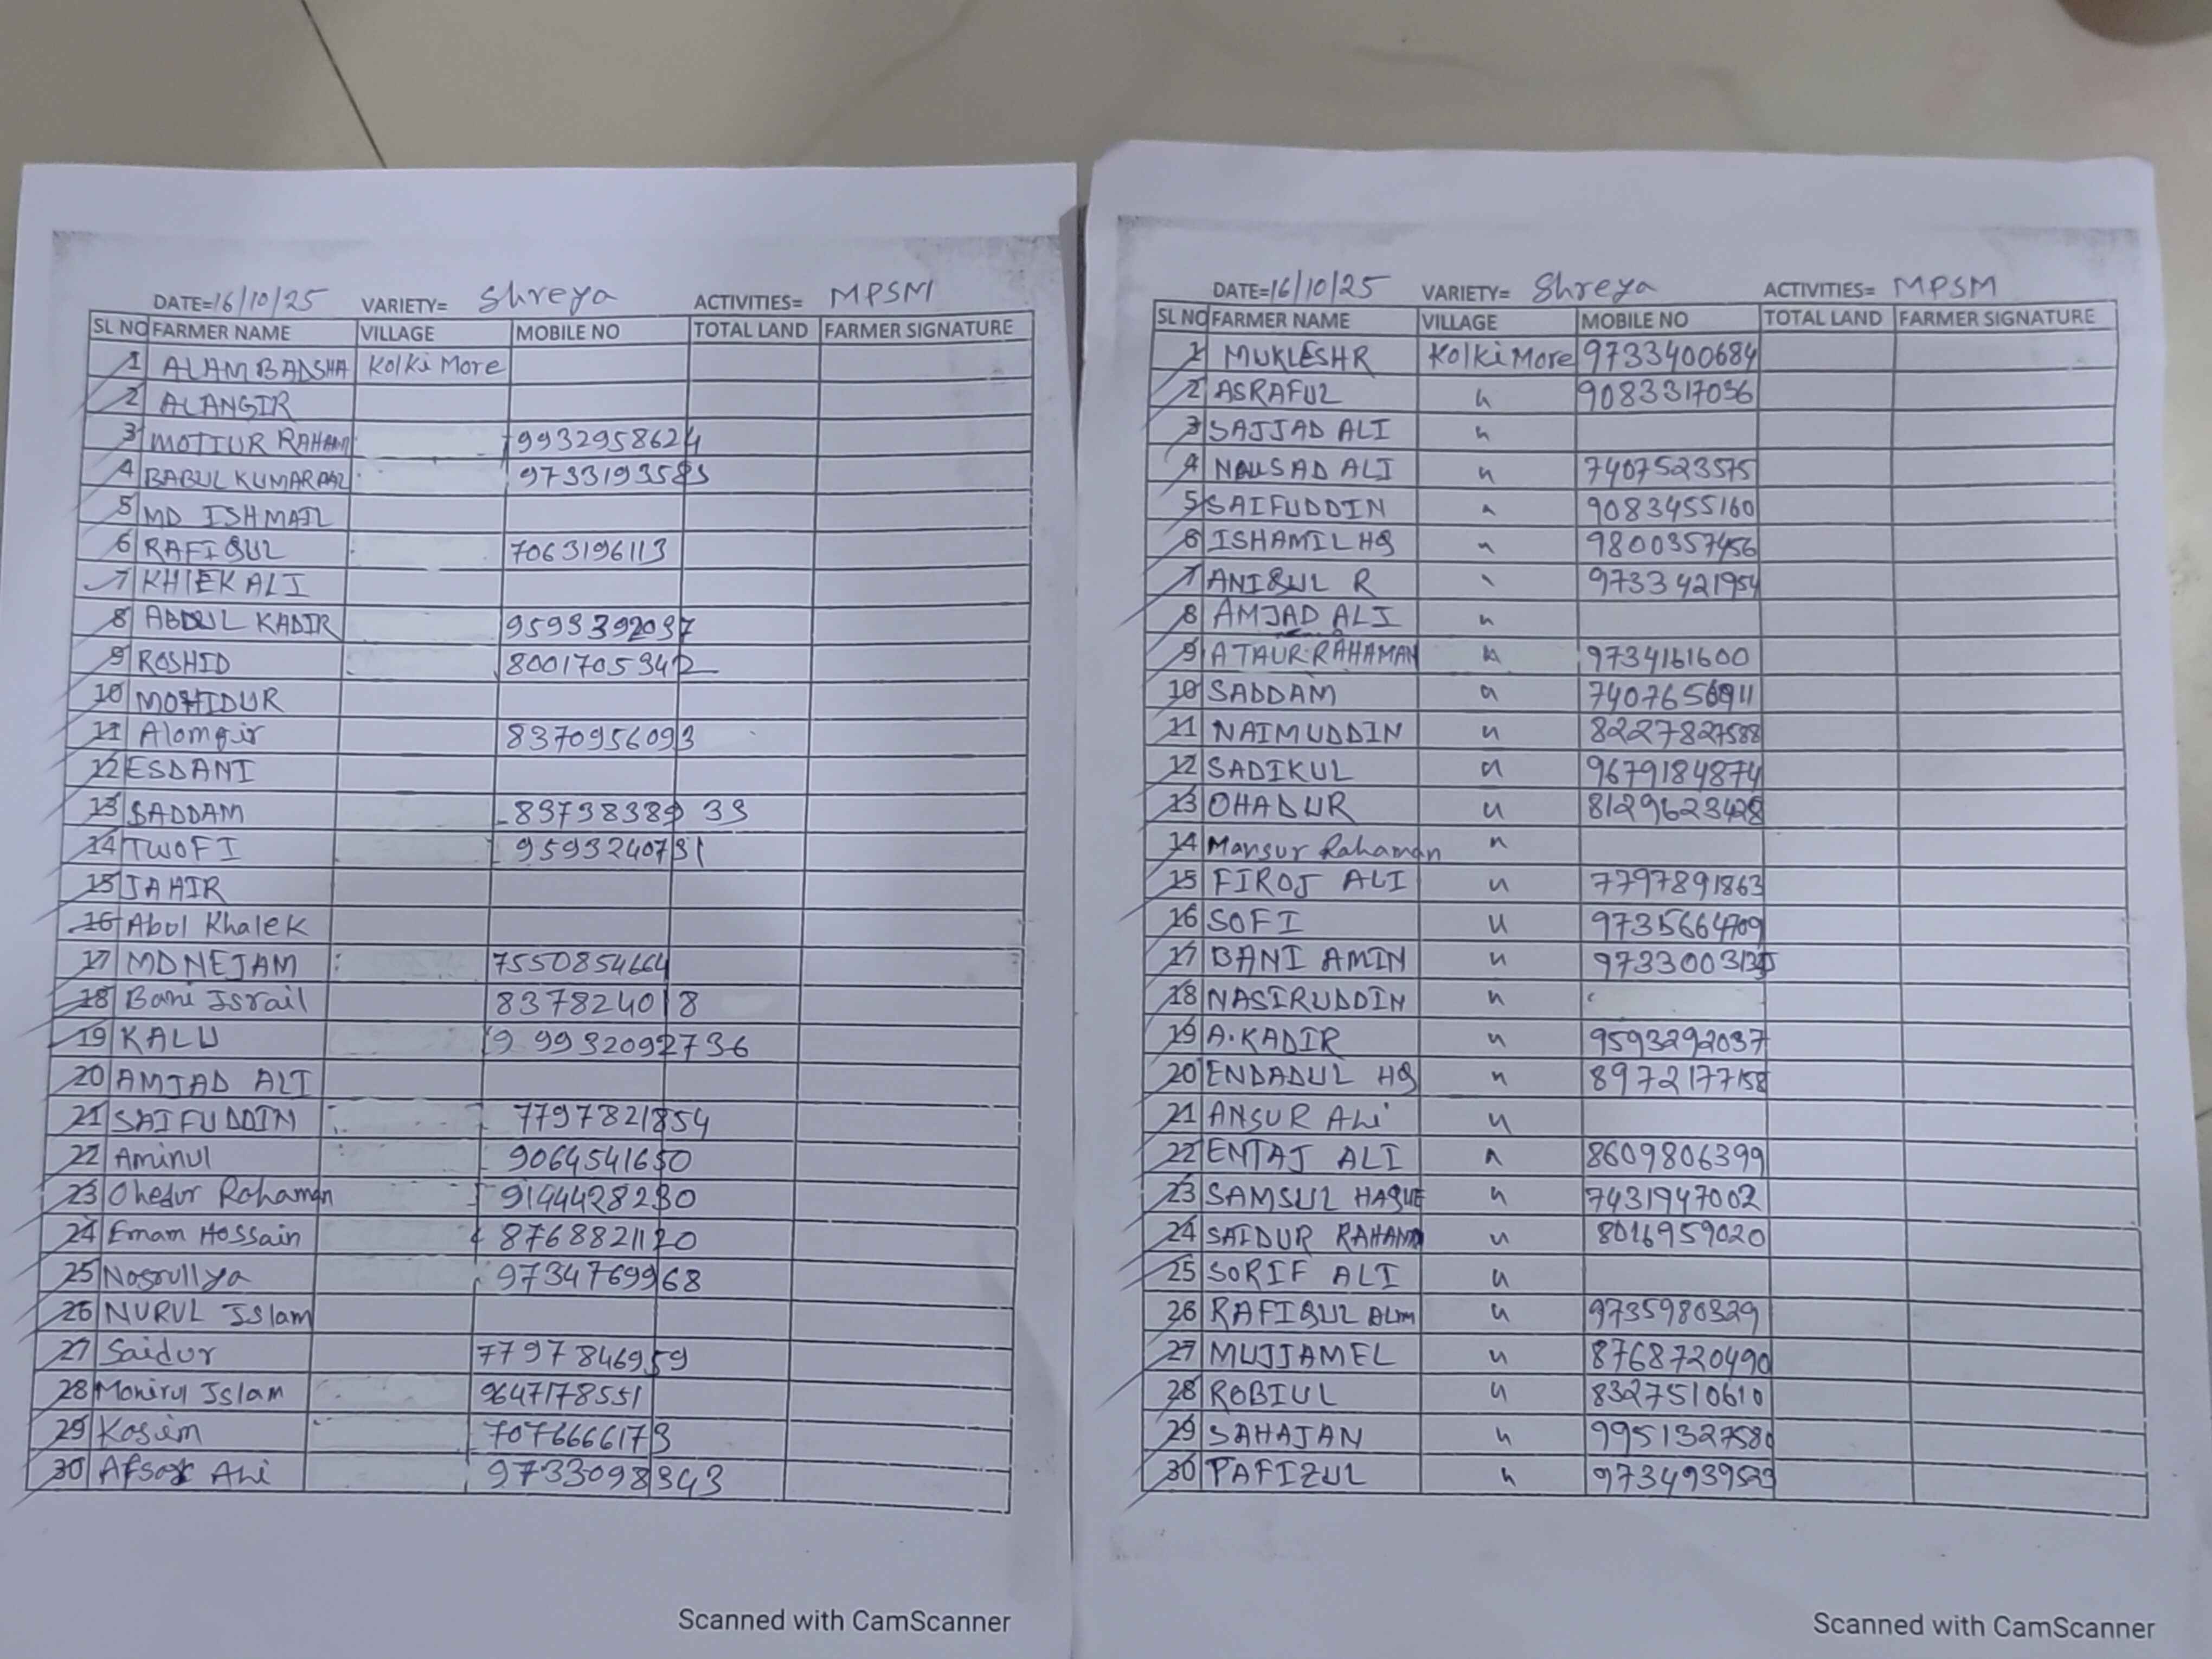 DATE=16/10/25 VARIETY= Shreya ACTIVITIES= MPSM
SL NO FARMER NAME VILLAGE MOBILE NO TOTAL LAND FARMER SIGNATURE
1 ALAM BADSHA Kolki More
2 ALANGIR
3 MOTIUR RAHAM 9932958624
4 BABUL KUMAR 9733193583
5 MD ISHMAIL
6 RAFIQUL 7063196113
7 KHIEK ALI
8 ABDUL KADIR 9593392037
9 ROSHID 8001705342
10 MOHIDUR
11 Alomgir 8370956093
12 ESDANI
13 SADDAM 8373838933
14 TWOFI 9593240731
15 JAHIR
16 Abul Khalek
17 MD NEJAM 7550854664
18 Bani Israil 837824018
19 KALU 9 9932092736
20 AMJAD ALI
21 SAIFUDDIN 7797821854
22 Aminul 9064541650
23 Ohedur Rahaman 9144428230
24 Emam Hossain 8768821120
25 Nosrullya 9734769968
26 NURUL Islam
27 Saidur 7797846959
28 Monirul Islam 9647178551
29 Kosim 7076666173
30 Afsar Ali 9733098343
Scanned with CamScanner
DATE=16/10/25 VARIETY= Shreya ACTIVITIES= MPSM
SL NO FARMER NAME VILLAGE MOBILE NO TOTAL LAND FARMER SIGNATURE
1 MUKLESHR Kolki More 9733400684
2 ASRAFUL " 9083317036
3 SAJJAD ALI "
4 NAUSAD ALI " 7407523575
5 SAIFUDDIN " 9083455160
6 ISHAMIL HQ " 9800357456
7 ANIQUL R " 9733421954
8 AMJAD ALI "
9 ATAUR RAHAMAN " 9734161600
10 SADDAM "
11 NAIMUDDIN " 8227827588
12 SADIKUL " 9679184874
13 OHADUR " 8129623428
14 Mansur Rahaman "
15 FIROJ ALI " 7797891863
16 SOFI " 9735664709
17 BANI AMIN "
18 NASIRUDDIN "
19 A.KADIR " 9593292037
20 ENDADUL HQ " 8972177158
21 ANSUR ALi "
22 ENTAJ ALI " 8609806399
23 SAMSUL HAQUE " 7431947002
24 SAIDUR RAHAMAN " 8016959020
25 SORIF ALI "
26 RAFIQUL ALM " 9735980329
27 MUJJAMEL " 8768720490
28 ROBIUL " 8327510610
29 SAHAJAN " 9951327580
30 PAFIZUL " 9734939529
Scanned with CamScanner